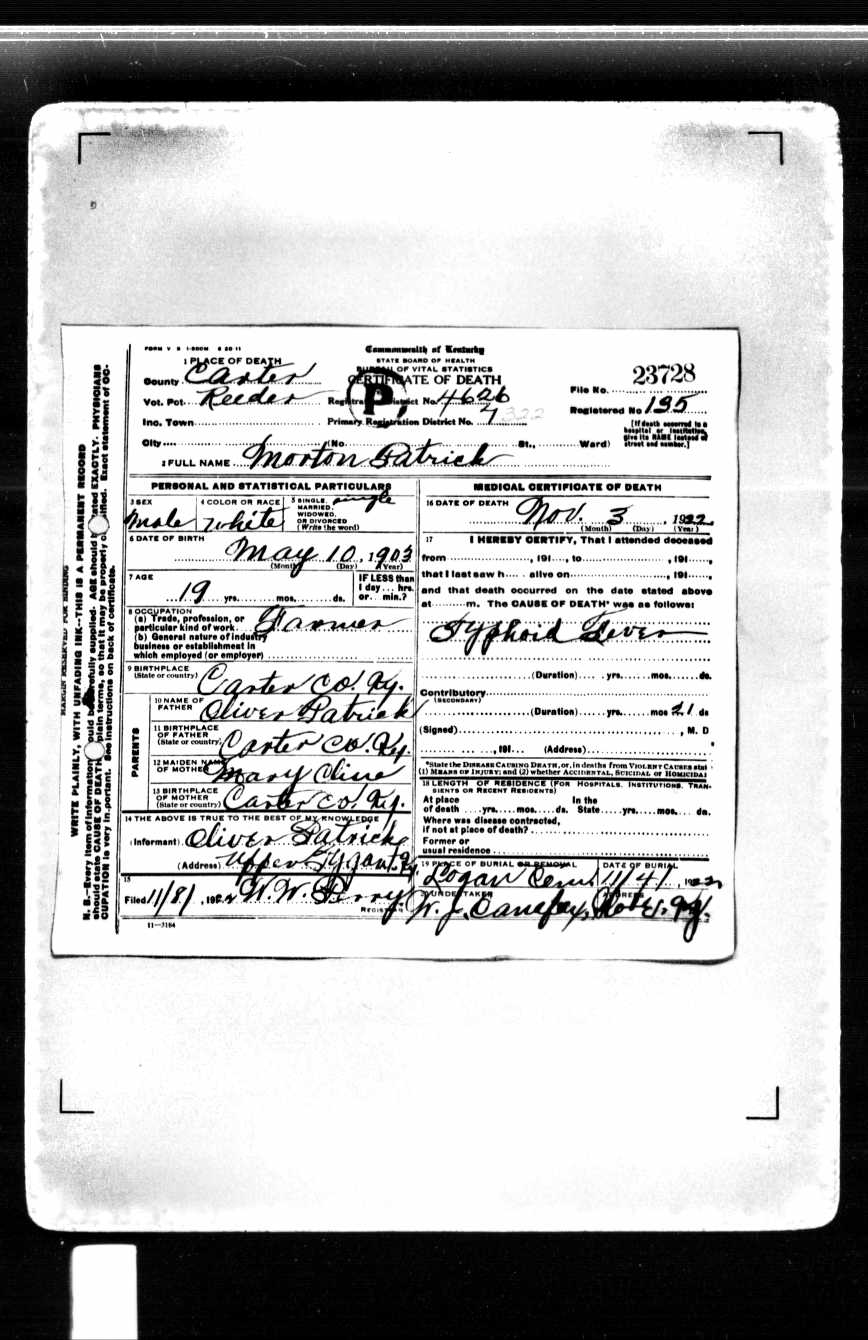 FORM V S 1-500M 6 20-11
Commonwealth of Kentucky
STATE BOARD OF HEALTH
BUREAU OF VITAL STATISTICS
CERTIFICATE OF DEATH
1 PLACE OF DEATH
County Carter
Vot. Pct. Reeder
Inc. Town
City (No. St., Ward)
P,
Registration District No. 4626
Primary Registration District No. 7322
23728
File No.
Registered No 135
[If death occurred in a hospital or institution, give its NAME instead of street and number.]
2 FULL NAME Morton Patrick
PERSONAL AND STATISTICAL PARTICULARS
3 SEX male
4 COLOR OR RACE white
5 SINGLE, MARRIED, WIDOWED, OR DIVORCED (Write the word) single
6 DATE OF BIRTH
May 10, 1903
(Month) (Day) (Year)
7 AGE
19 yrs. mos. ds.
IF LESS than 1 day hrs. or min.?
8 OCCUPATION
(a) Trade, profession, or particular kind of work Farmer
(b) General nature of industry business or establishment in which employed (or employer)
9 BIRTHPLACE
(State or country) Carter Co. Ky.
PARENTS
10 NAME OF FATHER Oliver Patrick
11 BIRTHPLACE OF FATHER (State or country) Carter Co. Ky.
12 MAIDEN NAME OF MOTHER Mary Cline
13 BIRTHPLACE OF MOTHER (State or country) Carter Co. Ky.
14 THE ABOVE IS TRUE TO THE BEST OF MY KNOWLEDGE
(Informant) Oliver Patrick
(Address) Upper Tygart, Ky.
15
Filed 11/8/, 192 W. W. Perry
REGISTRAR
11-3184
MEDICAL CERTIFICATE OF DEATH
16 DATE OF DEATH
Nov. 3, 1922
(Month) (Day) (Year)
17 I HEREBY CERTIFY, That I attended deceased
from , 191 , to , 191 ,
that I last saw h alive on , 191 ,
and that death occurred on the date stated above
at m. The CAUSE OF DEATH* was as follows:
Typhoid Fever
(Duration) yrs. mos. ds.
Contributory
(SECONDARY)
(Duration) yrs. mos 21 ds
(Signed) , M. D
, 191 (Address)
*State the DISEASE CAUSING DEATH, or, in deaths from VIOLENT CAUSES stat
(1) MEANS OF INJURY; and (2) whether ACCIDENTAL, SUICIDAL or HOMICIDAL
18 LENGTH OF RESIDENCE (FOR HOSPITALS, INSTITUTIONS, TRANSIENTS OR RECENT RESIDENTS)
At place of death yrs. mos. ds. In the State yrs. mos. ds.
Where was disease contracted, if not at place of death?
Former or usual residence
19 PLACE OF BURIAL OR REMOVAL
Logan Cem.
DATE OF BURIAL
11/4/, 1922
20 UNDERTAKER
W. J.
ADDRESS
Ky.
MARGIN RESERVED FOR BINDING
WRITE PLAINLY, WITH UNFADING INK--THIS IS A PERMANENT RECORD
N. B.--Every item of information should be carefully supplied. AGE should be stated EXACTLY. PHYSICIANS
should state CAUSE OF DEATH in plain terms, so that it may be properly classified. Exact statement of OCCUPATION is very important. See instructions on back of certificate.